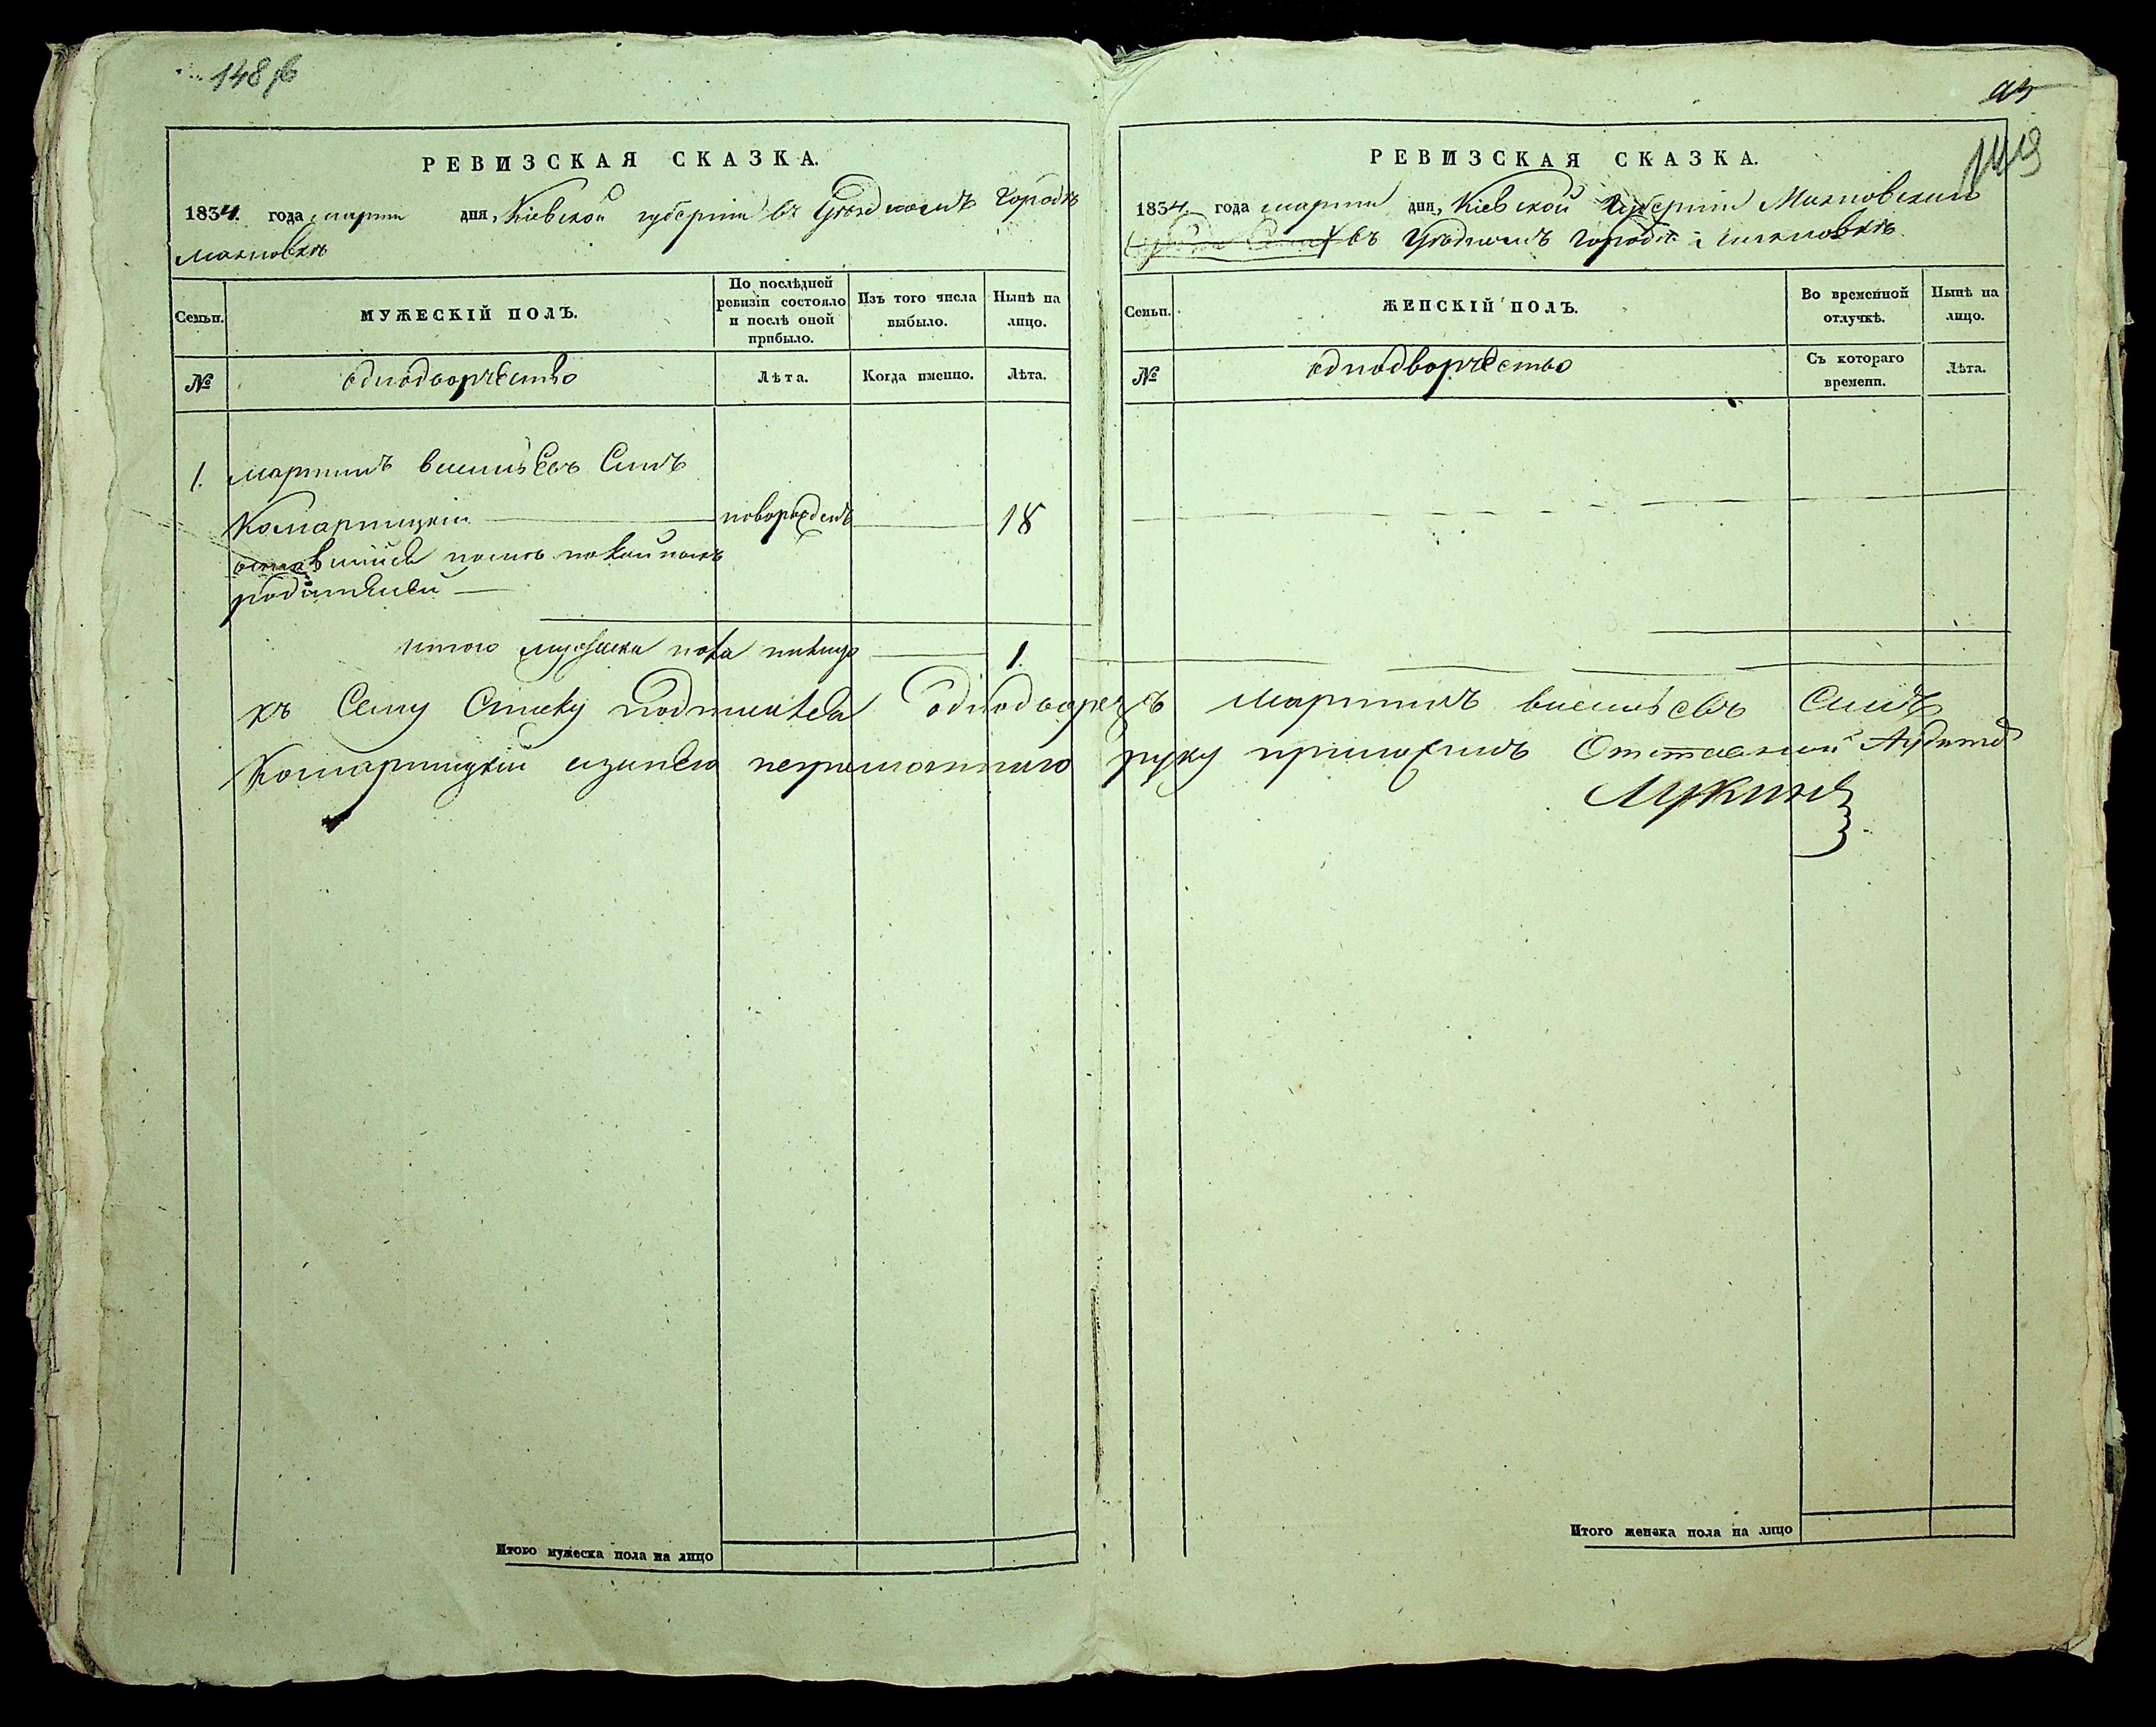 148
РЕВИЗСКАЯ СКАЗКА.
1834. года марта дня, Кіевской губерніи въ Уездномъ городѣ
махновкѣ
Семьи.
МУЖЕСКІЙ ПОЛЪ.
По послѣдней ревизіи состояло и послѣ оной прибыло.
Изъ того числа выбыло.
Нынѣ на лицо.
№
однодворчество
Лѣта.
Когда именно.
Лѣта.
1. мартинъ Синъ
Комарницкій новорожденъ 18
родителей
итого мужеска пола налицо 1.
къ Сему Списку Подписався Однодворецъ мартинъ Синъ
Комарницкій неграмотного руку приложилъ Отставной
Лукинъ
Итого мужеска пола на лицо
149
РЕВИЗСКАЯ СКАЗКА.
1834 года марта дня, Кіевской Губерніи Махновскаго
въ Уездномъ городѣ махновкѣ
Семьи.
ЖЕНСКІЙ ПОЛЪ.
Во временной отлучкѣ.
Нынѣ на лицо.
№
однодворчество
Съ котораго времени.
Лѣта.
Итого женска пола на лицо